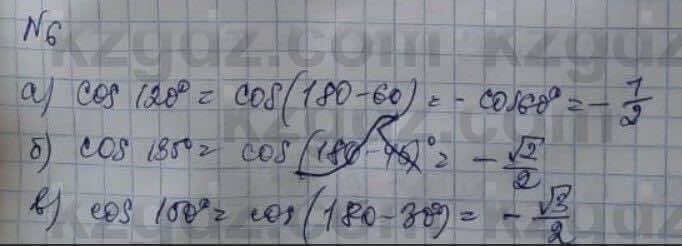 N6
а) cos 120° = cos(180-60) = - cos60° = - 1/2
б) cos 135° = cos = - √2/2
в) cos 150° = cos(180-30°) = - √3/2
kzgdz.com